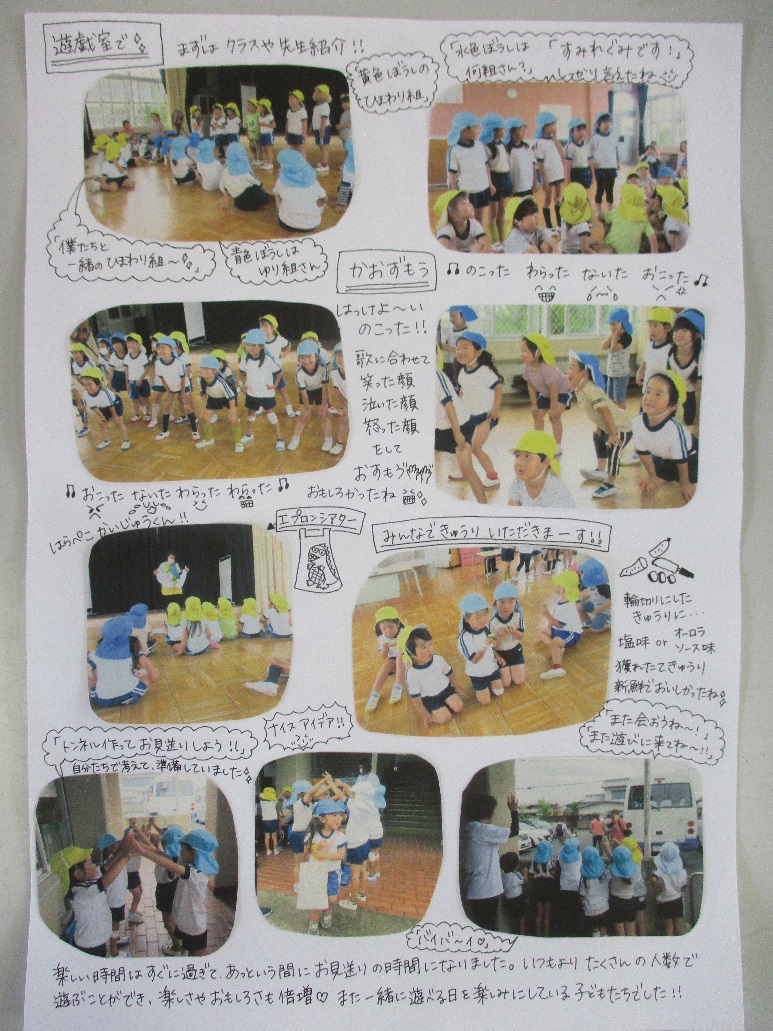 遊戯室で
まずは クラスや先生紹介!!
黄色ぼうしの
ひまわり組
「水色ぼうしは
何組さん?」
「すみれぐみです!」
しっかり言えたね
「僕たちと
一緒のひまわり組~」
青色ぼうしは
ゆり組さん
かおずもう
♫のこった わらった ないた おこった♫
はっけよ~い
のこった!!
歌に合わせて
笑った顔
泣いた顔
怒った顔
をして
おすもう
おもしろかったね
♫おこった ないた わらった わらった♫
はらぺこ かいじゅうくん!!
エプロンシアター
みんなできゅうり いただきまーす!!
輪切りにした
きゅうりに...
塩味 or オーロラソース味
獲れたてきゅうり
新鮮でおいしかったね
「また会おうね~!」
「また遊びに来てね~!!」
「トンネル作って お見送りしよう!!」
ナイスアイデア!!
自分たちで考えて、準備していました
バイバ~イ♡
楽しい時間はすぐに過ぎて、あっという間にお見送りの時間になりました。いつもより たくさんの人数で
遊ぶことができ、楽しさやおもしろさも倍増♡ また一緒に遊べる日を楽しみにしている子どもたちでした!!